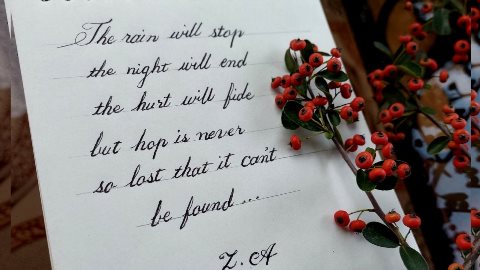 The rain will stop
the night will end
the hurt will fide
but hop is never
so lost that it can't
be found ...
Z.A